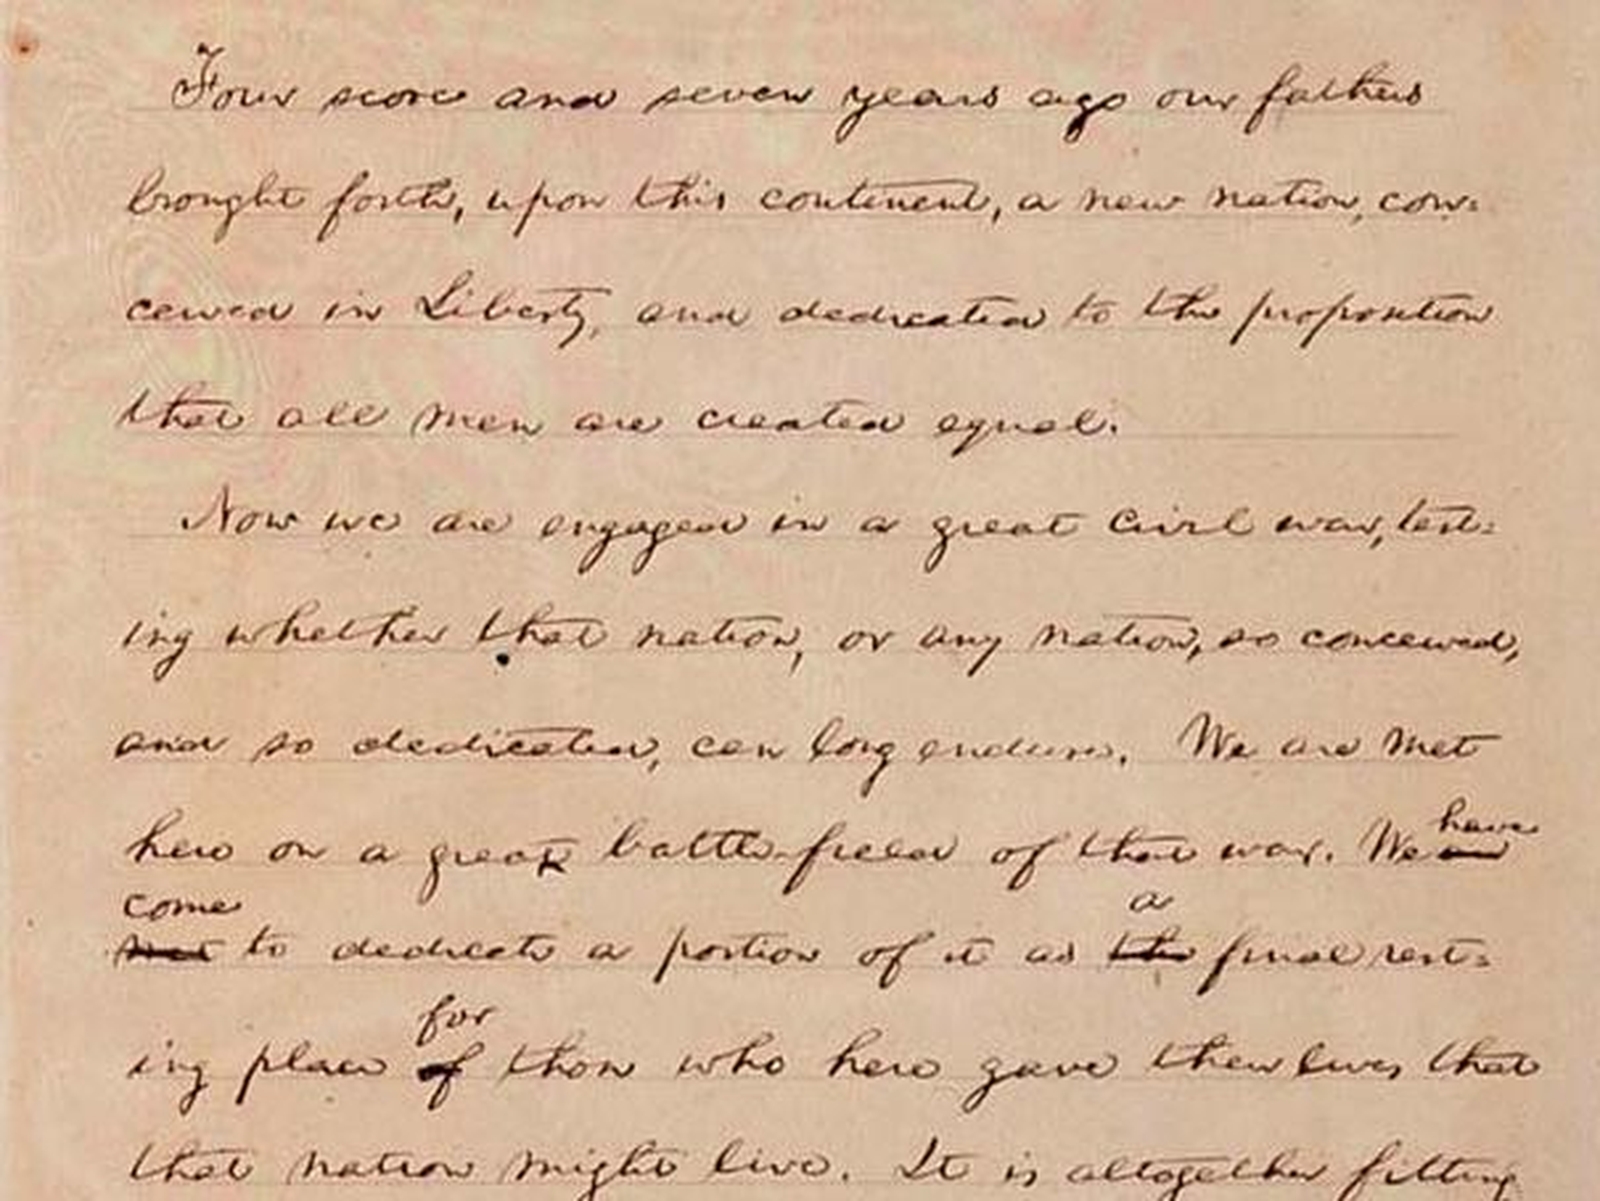 Four score and seven years ago our fathers
brought forth, upon this continent, a new nation, con=
ceived in Liberty, and dedicated to the proposition
that all men are created equal.
Now we are engaged in a great civil war, test=
ing whether that nation, or any nation, so conceived,
and so dedicated, can long endure. We are met
have
here on a great battle-field of that war. We are
come a
met to dedicate a portion of it as the final rest=
for
ing place of those who here gave their lives that
that nation might live. It is altogether fitting